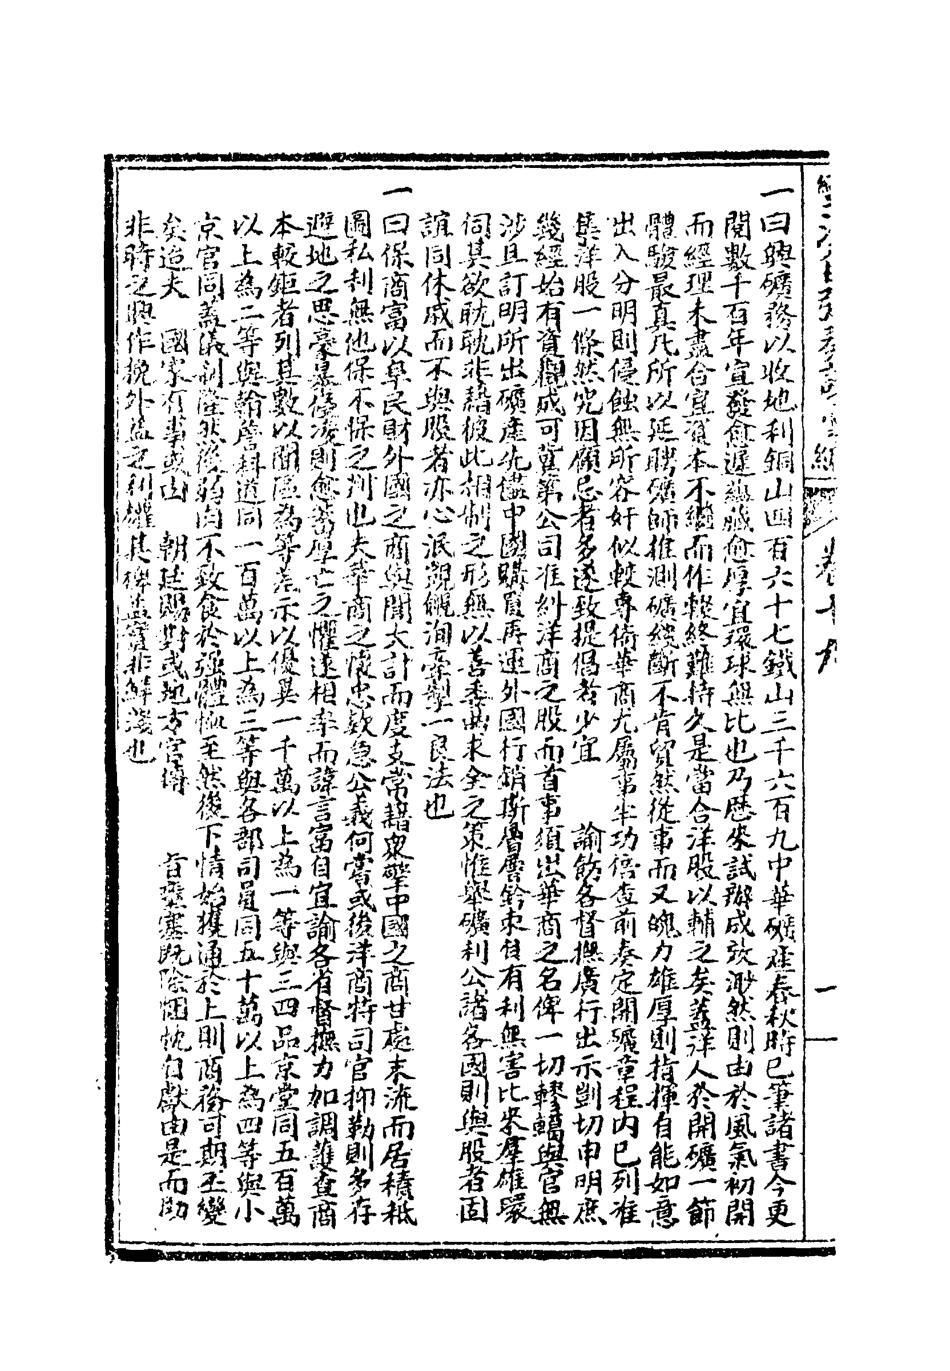 一曰興礦務以收地利銅山四百六十七鐵山三千六百九中華礦產春秋時已筆諸書今更
閱數千百年宣發愈遲蘊藏愈厚宜環球無比也乃歷來試辦成效渺然則由於風氣初開
而經理未盡合宜資本不繼而作輟終難持久是當合洋股以輔之矣蓋洋人於開礦一節
體驗最真凡所以延聘礦師推測礦綫斷不肯貿然從事而又魄力雄厚則指揮自能如意
出入分明則侵蝕無所容奸似較專倚華商尤屬事半功倍查前奏定開礦章程內已列准
集洋股一條然究因顧忌者多遂致提倡者少宜 諭飭各督撫廣行出示剴切申明庶
幾經始有資觀成可冀第公司准糾洋商之股而首事須出華商之名俾一切轇轕與官無
涉且訂明所出礦產先儘中國購買再運外國行銷斯層層鈐束自有利無害比來羣雄環
伺其欲眈眈非藉彼此相制之形無以善委曲求全之策惟舉礦利公諸各國則與股者固
誼同休戚而不與股者亦心泯覬覦洵牽掣一良法也
一曰保商富以阜民財外國之商與聞大計而度支常藉衆擎中國之商甘處末流而居積秖
圖私利無他保不保之判也夫華商之懷忠欵急公義何嘗或後洋商特司官抑勒則多存
避地之思豪暴侵凌則愈蓄厚亡之懼遂相率而諱言富自宜諭各省督撫力加調護查商
本較鉅者列其數以閒區為等差示以優異一千萬以上為一等與三四品京堂同五百萬
以上為二等與翰詹科道同一百萬以上為三等與各部司員同五十萬以上為四等與小
京官同蓋儀制隆然後弱肉不致食於强體恤至然後下情始獲通於上則商務可期丕變
矣迨夫 國家有事或由 朝廷賜對或地方官傳 旨壅塞既除悃忱自獻由是而助
非時之興作挽外溢之利權其裨益實非鮮淺也